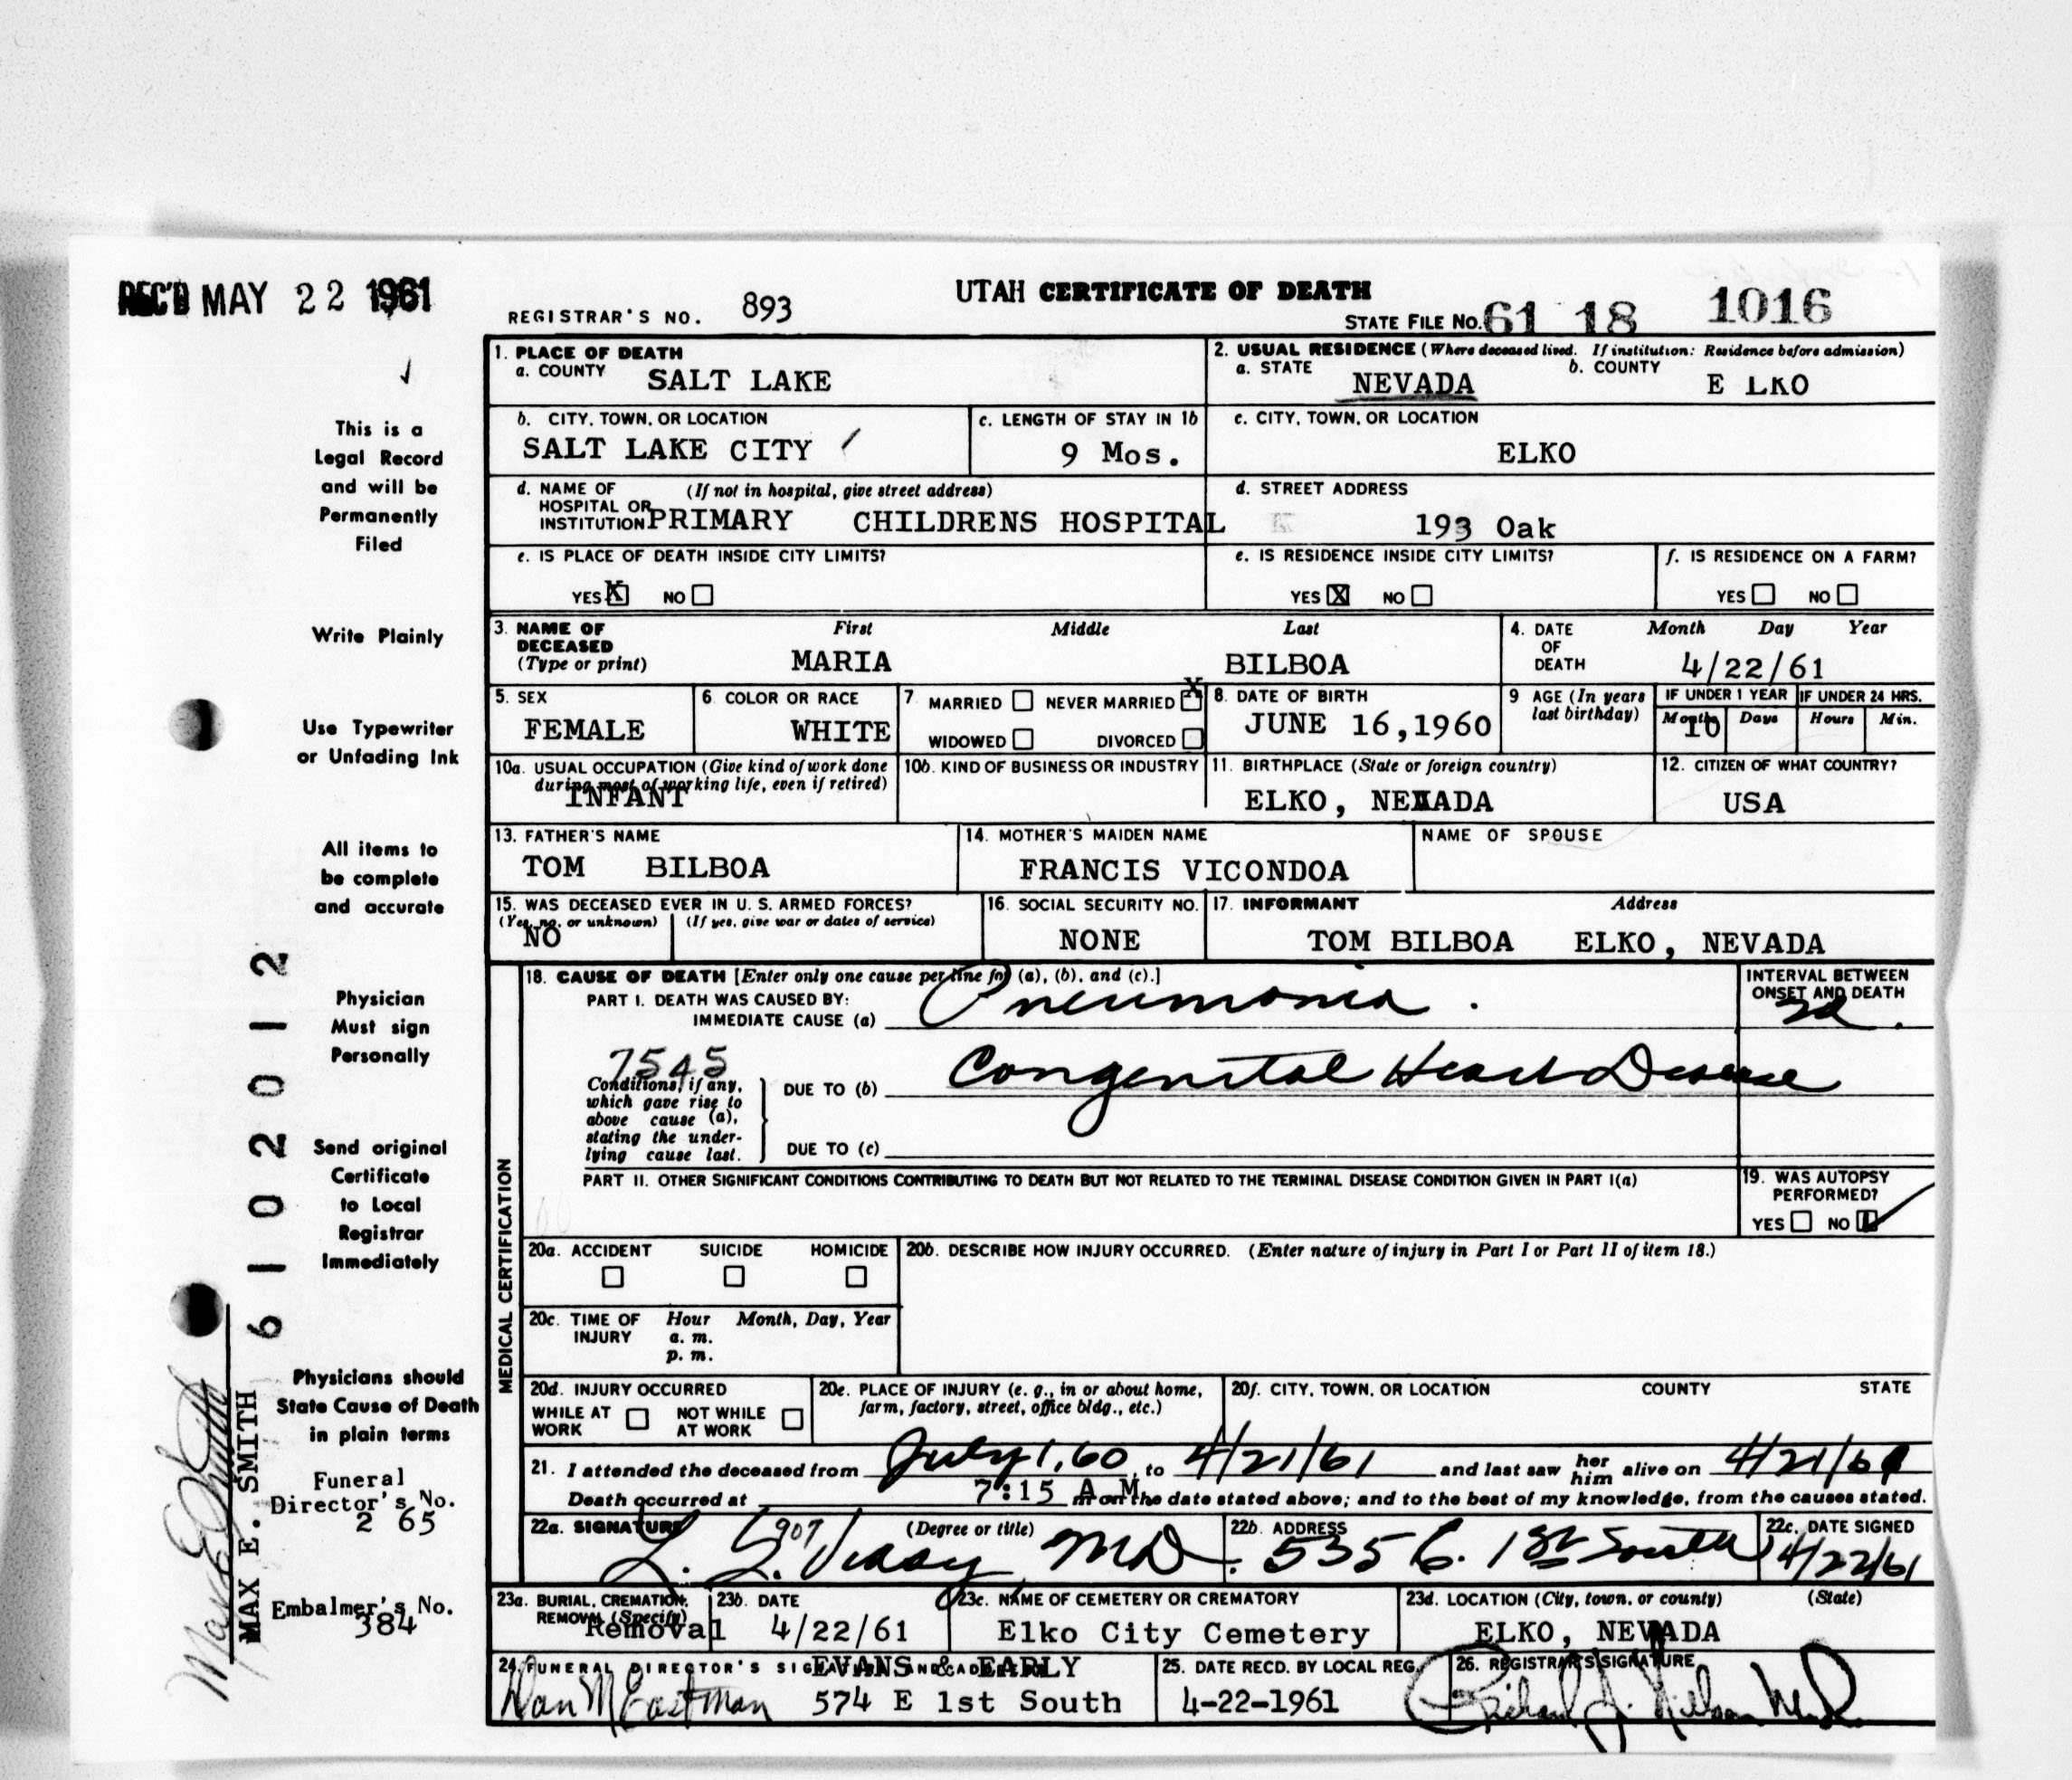 REC'D MAY 22 1961
UTAH CERTIFICATE OF DEATH
REGISTRAR'S NO. 893
STATE FILE No. 61 18 1016
This is a
Legal Record
and will be
Permanently
Filed
Write Plainly
Use Typewriter
or Unfading Ink
All items to
be complete
and accurate
Physician
Must sign
Personally
Send original
Certificate
to Local
Registrar
Immediately
Physicians should
State Cause of Death
in plain terms
Funeral
Director's No.
2 65
Embalmer's No.
384
6102012
MAX E. SMITH
Max E Smith
1. PLACE OF DEATH
a. COUNTY SALT LAKE
2. USUAL RESIDENCE (Where deceased lived. If institution: Residence before admission)
a. STATE NEVADA b. COUNTY E LKO
b. CITY, TOWN, OR LOCATION
SALT LAKE CITY
c. LENGTH OF STAY IN 1b
9 Mos.
c. CITY, TOWN, OR LOCATION
ELKO
d. NAME OF (If not in hospital, give street address)
HOSPITAL OR
INSTITUTION PRIMARY CHILDRENS HOSPITAL
d. STREET ADDRESS
193 Oak
e. IS PLACE OF DEATH INSIDE CITY LIMITS?
YES X NO
e. IS RESIDENCE INSIDE CITY LIMITS?
YES X NO
f. IS RESIDENCE ON A FARM?
YES NO
3. NAME OF DECEASED (Type or print)
First Middle Last
MARIA BILBOA
4. DATE OF DEATH Month Day Year
4/22/61
5. SEX
FEMALE
6. COLOR OR RACE
WHITE
7 MARRIED NEVER MARRIED X
WIDOWED DIVORCED
8. DATE OF BIRTH
JUNE 16,1960
9 AGE (In years last birthday)
IF UNDER 1 YEAR IF UNDER 24 HRS.
Months Days Hours Min.
10
10a. USUAL OCCUPATION (Give kind of work done
during most of working life, even if retired)
INFANT
10b. KIND OF BUSINESS OR INDUSTRY
11. BIRTHPLACE (State or foreign country)
ELKO, NEVADA
12. CITIZEN OF WHAT COUNTRY?
USA
13. FATHER'S NAME
TOM BILBOA
14. MOTHER'S MAIDEN NAME
FRANCIS VICONDOA
NAME OF SPOUSE
15. WAS DECEASED EVER IN U. S. ARMED FORCES?
(Yes, no, or unknown) (If yes, give war or dates of service)
NO
16. SOCIAL SECURITY NO.
NONE
17. INFORMANT Address
TOM BILBOA ELKO, NEVADA
MEDICAL CERTIFICATION
18. CAUSE OF DEATH [Enter only one cause per line for (a), (b), and (c).]
PART I. DEATH WAS CAUSED BY:
IMMEDIATE CAUSE (a) Pneumonia.
INTERVAL BETWEEN
ONSET AND DEATH
7545
Conditions, if any,
which gave rise to
above cause (a),
stating the under-
lying cause last.
DUE TO (b) Congenital Heart Disease
DUE TO (c)
PART II. OTHER SIGNIFICANT CONDITIONS CONTRIBUTING TO DEATH BUT NOT RELATED TO THE TERMINAL DISEASE CONDITION GIVEN IN PART I(a)
19. WAS AUTOPSY
PERFORMED?
YES NO
20a. ACCIDENT SUICIDE HOMICIDE
20b. DESCRIBE HOW INJURY OCCURRED. (Enter nature of injury in Part I or Part II of item 18.)
20c. TIME OF INJURY Hour Month, Day, Year
a. m.
p. m.
20d. INJURY OCCURRED
WHILE AT WORK NOT WHILE AT WORK
20e. PLACE OF INJURY (e. g., in or about home,
farm, factory, street, office bldg., etc.)
20f. CITY, TOWN, OR LOCATION COUNTY STATE
21. I attended the deceased from July 1, 60, to 4/21/61 and last saw her him alive on 4/21/61
Death occurred at 7:15 A.M. m on the date stated above; and to the best of my knowledge, from the causes stated.
22a. SIGNATURE 907 (Degree or title)
MD.
22b. ADDRESS
535 E. 1st South
22c. DATE SIGNED
4/22/61
23a. BURIAL, CREMATION,
REMOVAL (Specify)
Removal
23b. DATE
4/22/61
23c. NAME OF CEMETERY OR CREMATORY
Elko City Cemetery
23d. LOCATION (City, town, or county) (State)
ELKO, NEVADA
24. FUNERAL DIRECTOR'S SIGNATURE AND ADDRESS
EVANS & EARLY
Dan M Eastman 574 E 1st South
25. DATE RECD. BY LOCAL REG.
4-22-1961
26. REGISTRAR'S SIGNATURE